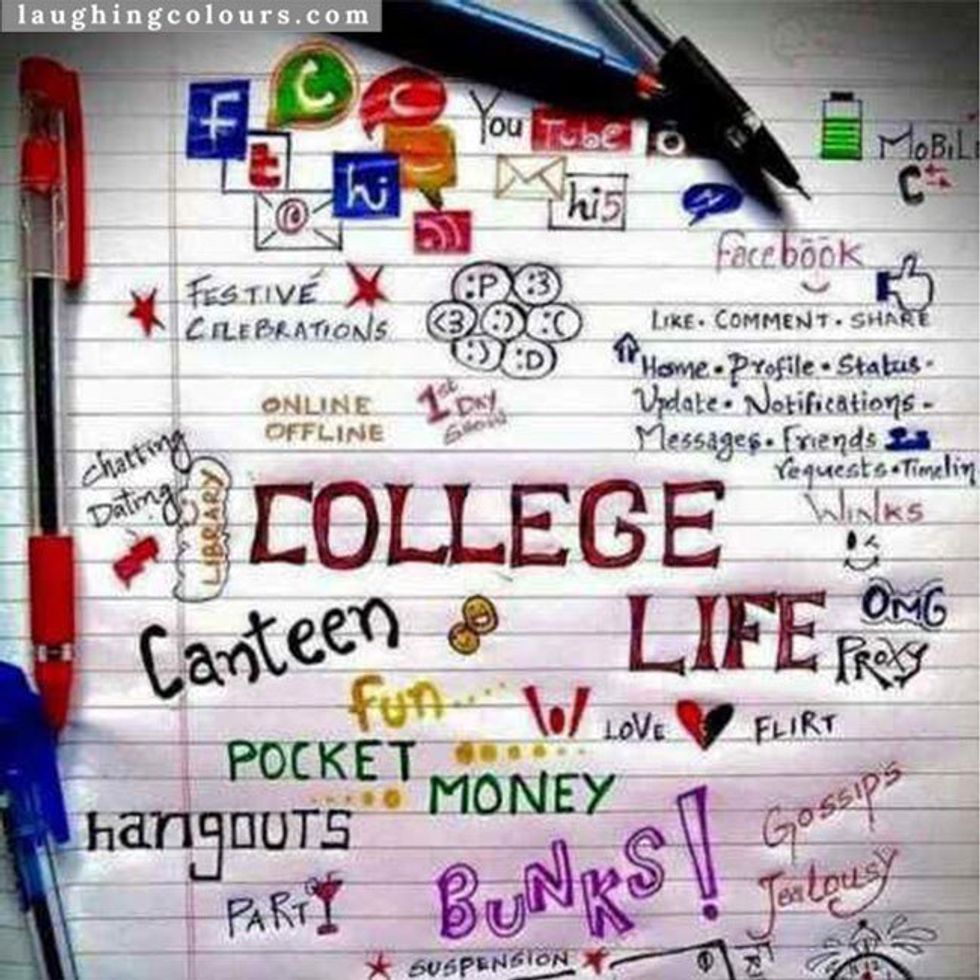 laughingcolours.com
f
t
You Tube
@
hi
hi5
MOBIL
Facebook
FESTIVE
CELEBRATIONS
:P :3
<3 :) :(
:) :D
LIKE. COMMENT. SHARE
Home • Profile • Status •
Update • Notifications •
Messages • Friends
requests • Timelin
ONLINE
OFFLINE
1st DAY
SHOW
Chatting
Dating
LIBRARY
COLLEGE
LIFE
Winks
OMG
PROXY
Canteen
fun....
LOVE FLIRT
POCKET
MONEY
hangouts
Gossips
Jealousy
BUNKS!
PARTY
SUSPENSION